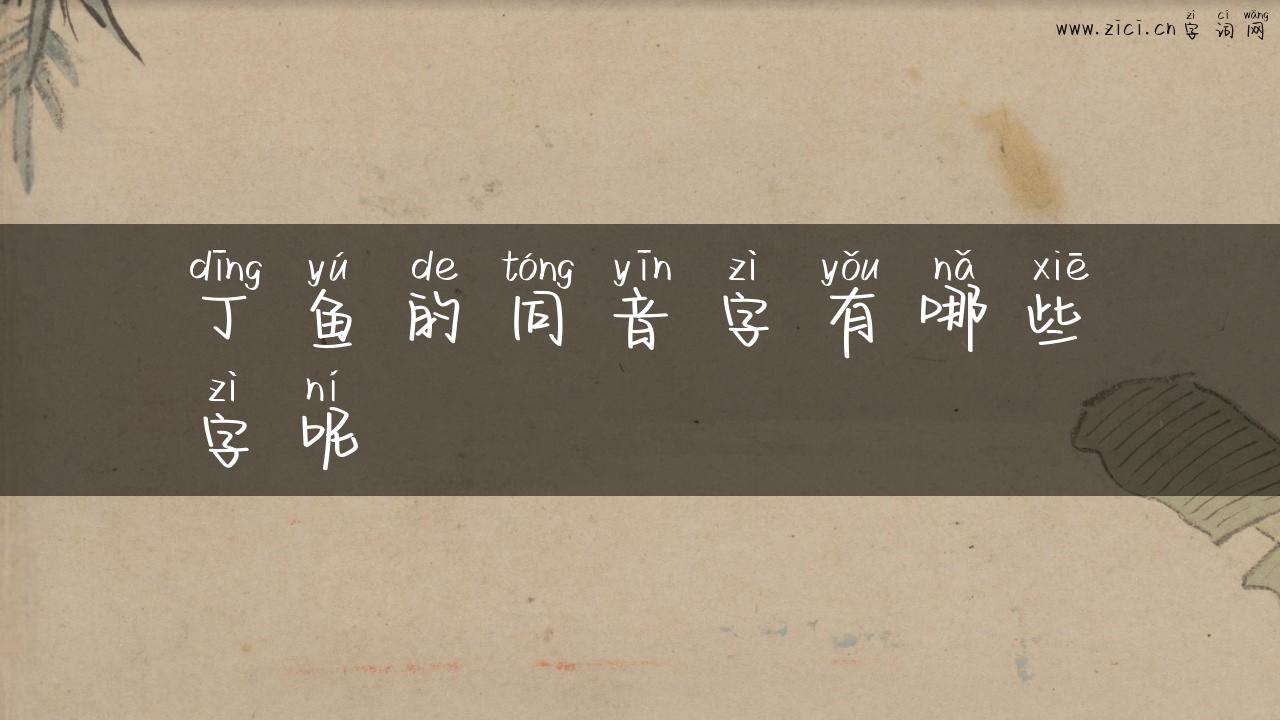 zì cí wǎng
www.zici.cn 字 词 网
dīng yú de tóng yīn zì yǒu nǎ xiē
丁 鱼 的 同 音 字 有 哪 些
zì ní
字 呢